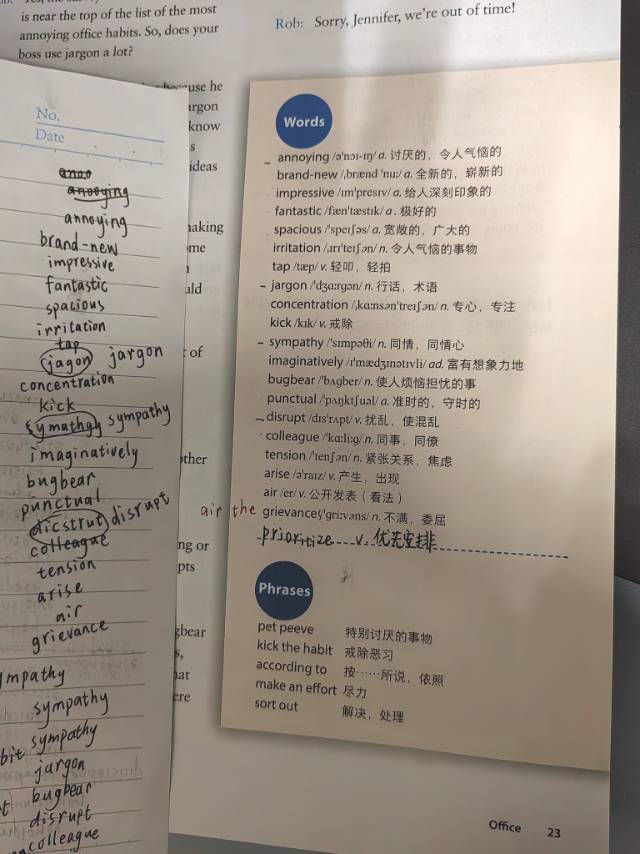 is near the top of the list of the most
annoying office habits. So, does your
boss use jargon a lot?
Rob: Sorry, Jennifer, we're out of time!
use he
know
s
ideas
me
of
ng or
pts
No.
Date
annoying
brand-new
impressive
fantastic
spacious
irritation
tap
jagon jargon
concentration
kick
symathgy sympathy
imaginatively
bugbear
punctual
dicstrut disrupt
colleague
tension
arise
air
grievance
mpathy
sympathy
bit sympathy
jargon
t bugbear
disrupt
colleague
Words
annoying /ə'nɔɪ-ɪŋ/ a. 讨厌的，令人气恼的
brand-new /ˌbrænd 'nuː/ a. 全新的，崭新的
impressive /ɪm'presɪv/ a. 给人深刻印象的
fantastic /fæn'tæstɪk/ a. 极好的
spacious /'speɪʃəs/ a. 宽敞的，广大的
irritation /ˌɪrɪ'teɪʃən/ n. 令人气恼的事物
tap /tæp/ v. 轻叩，轻拍
jargon /'dʒɑːrgən/ n. 行话，术语
concentration /ˌkɑːnsən'treɪʃən/ n. 专心，专注
kick /kɪk/ v. 戒除
sympathy /'sɪmpəθi/ n. 同情，同情心
imaginatively /ɪ'mædʒɪnətɪvli/ ad. 富有想象力地
bugbear /'bʌgber/ n. 使人烦恼担忧的事
punctual /'pʌŋktʃuəl/ a. 准时的，守时的
disrupt /dɪs'rʌpt/ v. 扰乱，使混乱
colleague /'kɑːliːg/ n. 同事，同僚
tension /'tenʃən/ n. 紧张关系，焦虑
arise /ə'raɪz/ v. 产生，出现
air /er/ v. 公开发表（看法）
air the grievances /'griːvəns/ n. 不满，委屈
prioritize v. 优先安排
Phrases
pet peeve 特别讨厌的事物
kick the habit 戒除恶习
according to 按……所说，依照
make an effort 尽力
sort out 解决，处理
Office 23